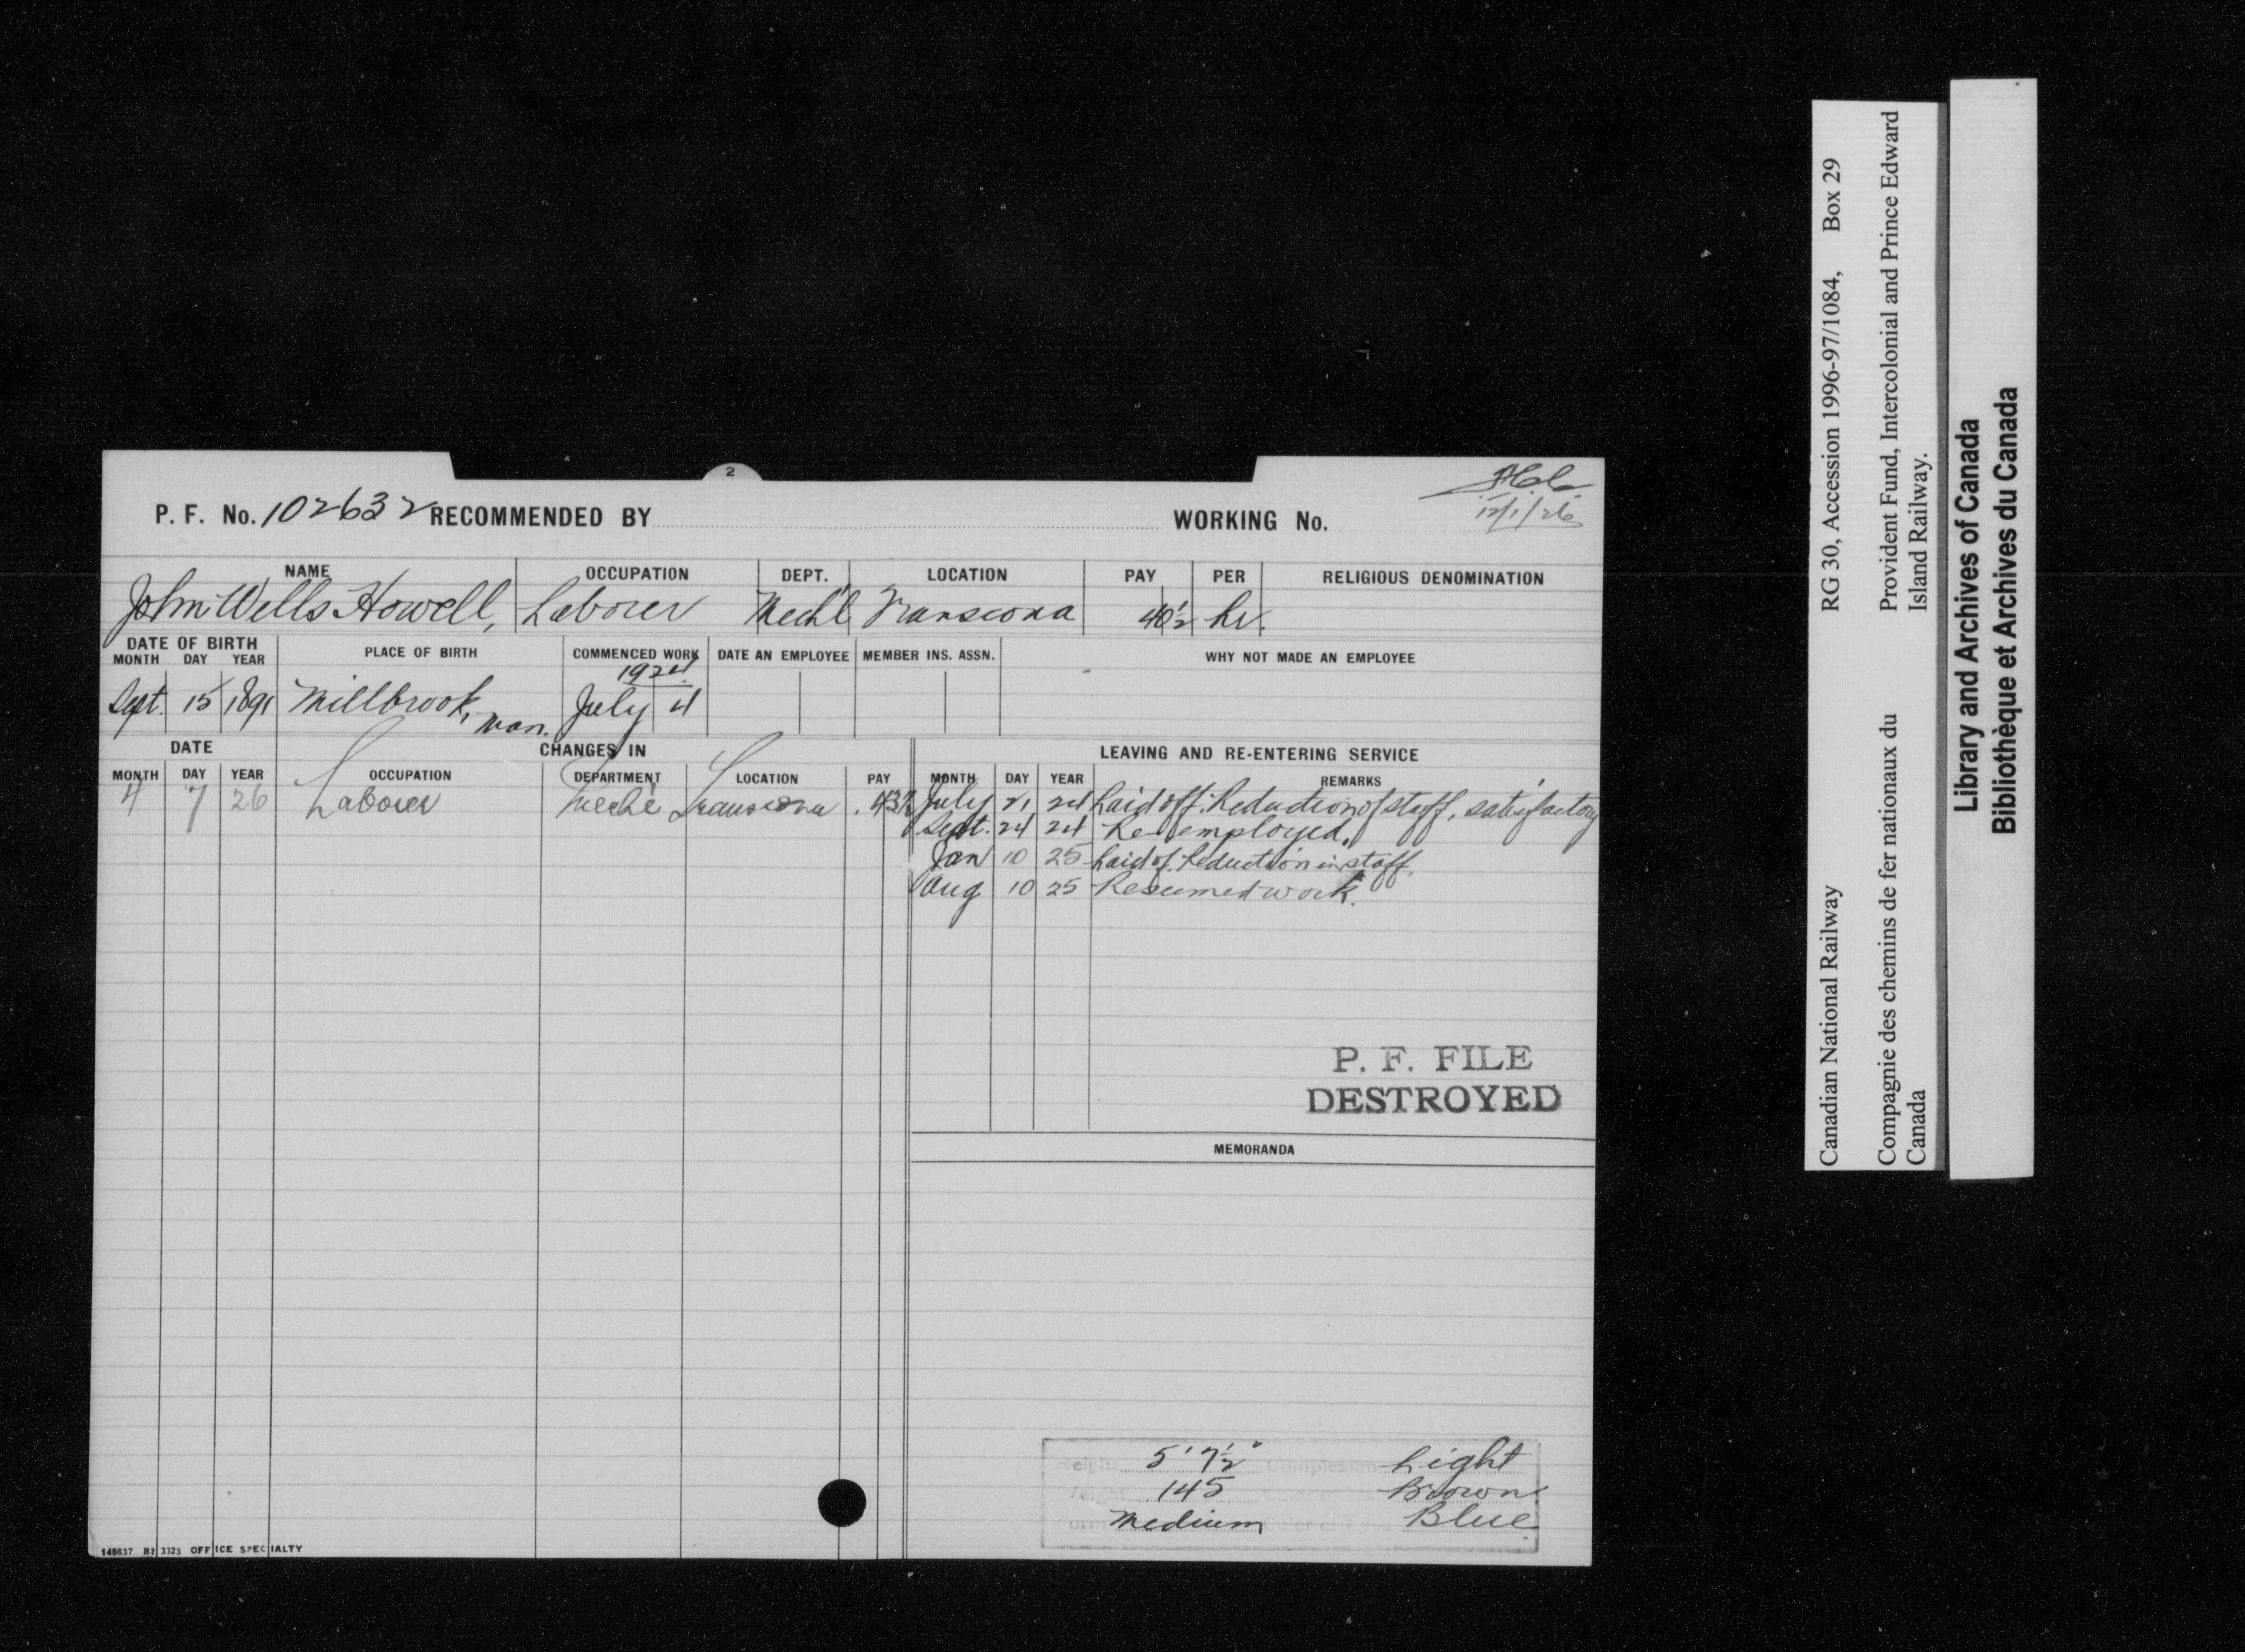 2
P. F. No. 102632 RECOMMENDED BY WORKING No.
12/1/26
NAME OCCUPATION DEPT. LOCATION PAY PER RELIGIOUS DENOMINATION
John Wells Howell, Laborer Mech'l Transcona 40½ hr.
DATE OF BIRTH PLACE OF BIRTH COMMENCED WORK DATE AN EMPLOYEE MEMBER INS. ASSN. WHY NOT MADE AN EMPLOYEE
MONTH DAY YEAR
1924
Sept. 15 1891 Millbrook, Man. July 4
DATE CHANGES IN LEAVING AND RE-ENTERING SERVICE
MONTH DAY YEAR OCCUPATION DEPARTMENT LOCATION PAY MONTH DAY YEAR REMARKS
4 7 26 Laborer Mechl Transcona July 21 24 Laid off. Reduction of staff, satisfactory
Sept. 24 24 Re-employed.
Jan 10 25 Laid of. Reduction in staff.
Aug 10 25 Resumed work.
P. F. FILE
DESTROYED
MEMORANDA
Height 5' 7½" Complexion Light
Weight 145 Brown
Medium Color of Eyes Blue
148637 B1 3323 OFFICE SPECIALTY
Canadian National Railway RG 30, Accession 1996-97/1084, Box 29
Compagnie des chemins de fer nationaux du Provident Fund, Intercolonial and Prince Edward
Canada Island Railway.
Library and Archives of Canada
Bibliothèque et Archives du Canada